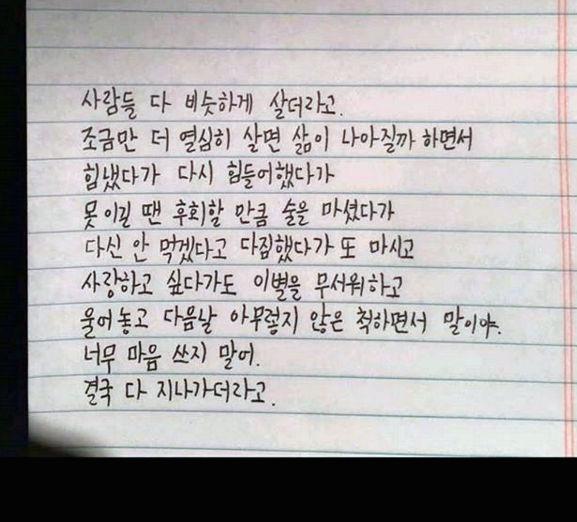 사람들 다 비슷하게 살더라고.
조금만 더 열심히 살면 삶이 나아질까 하면서
힘냈다가 다시 힘들어했다가
못 이길 땐 후회할 만큼 술을 마셨다가
다신 안 먹겠다고 다짐했다가 또 마시고
사랑하고 싶다가도 이별을 무서워하고
울어놓고 다음날 아무렇지 않은 척하면서 말이야.
너무 마음 쓰지 말어.
결국 다 지나가더라고.